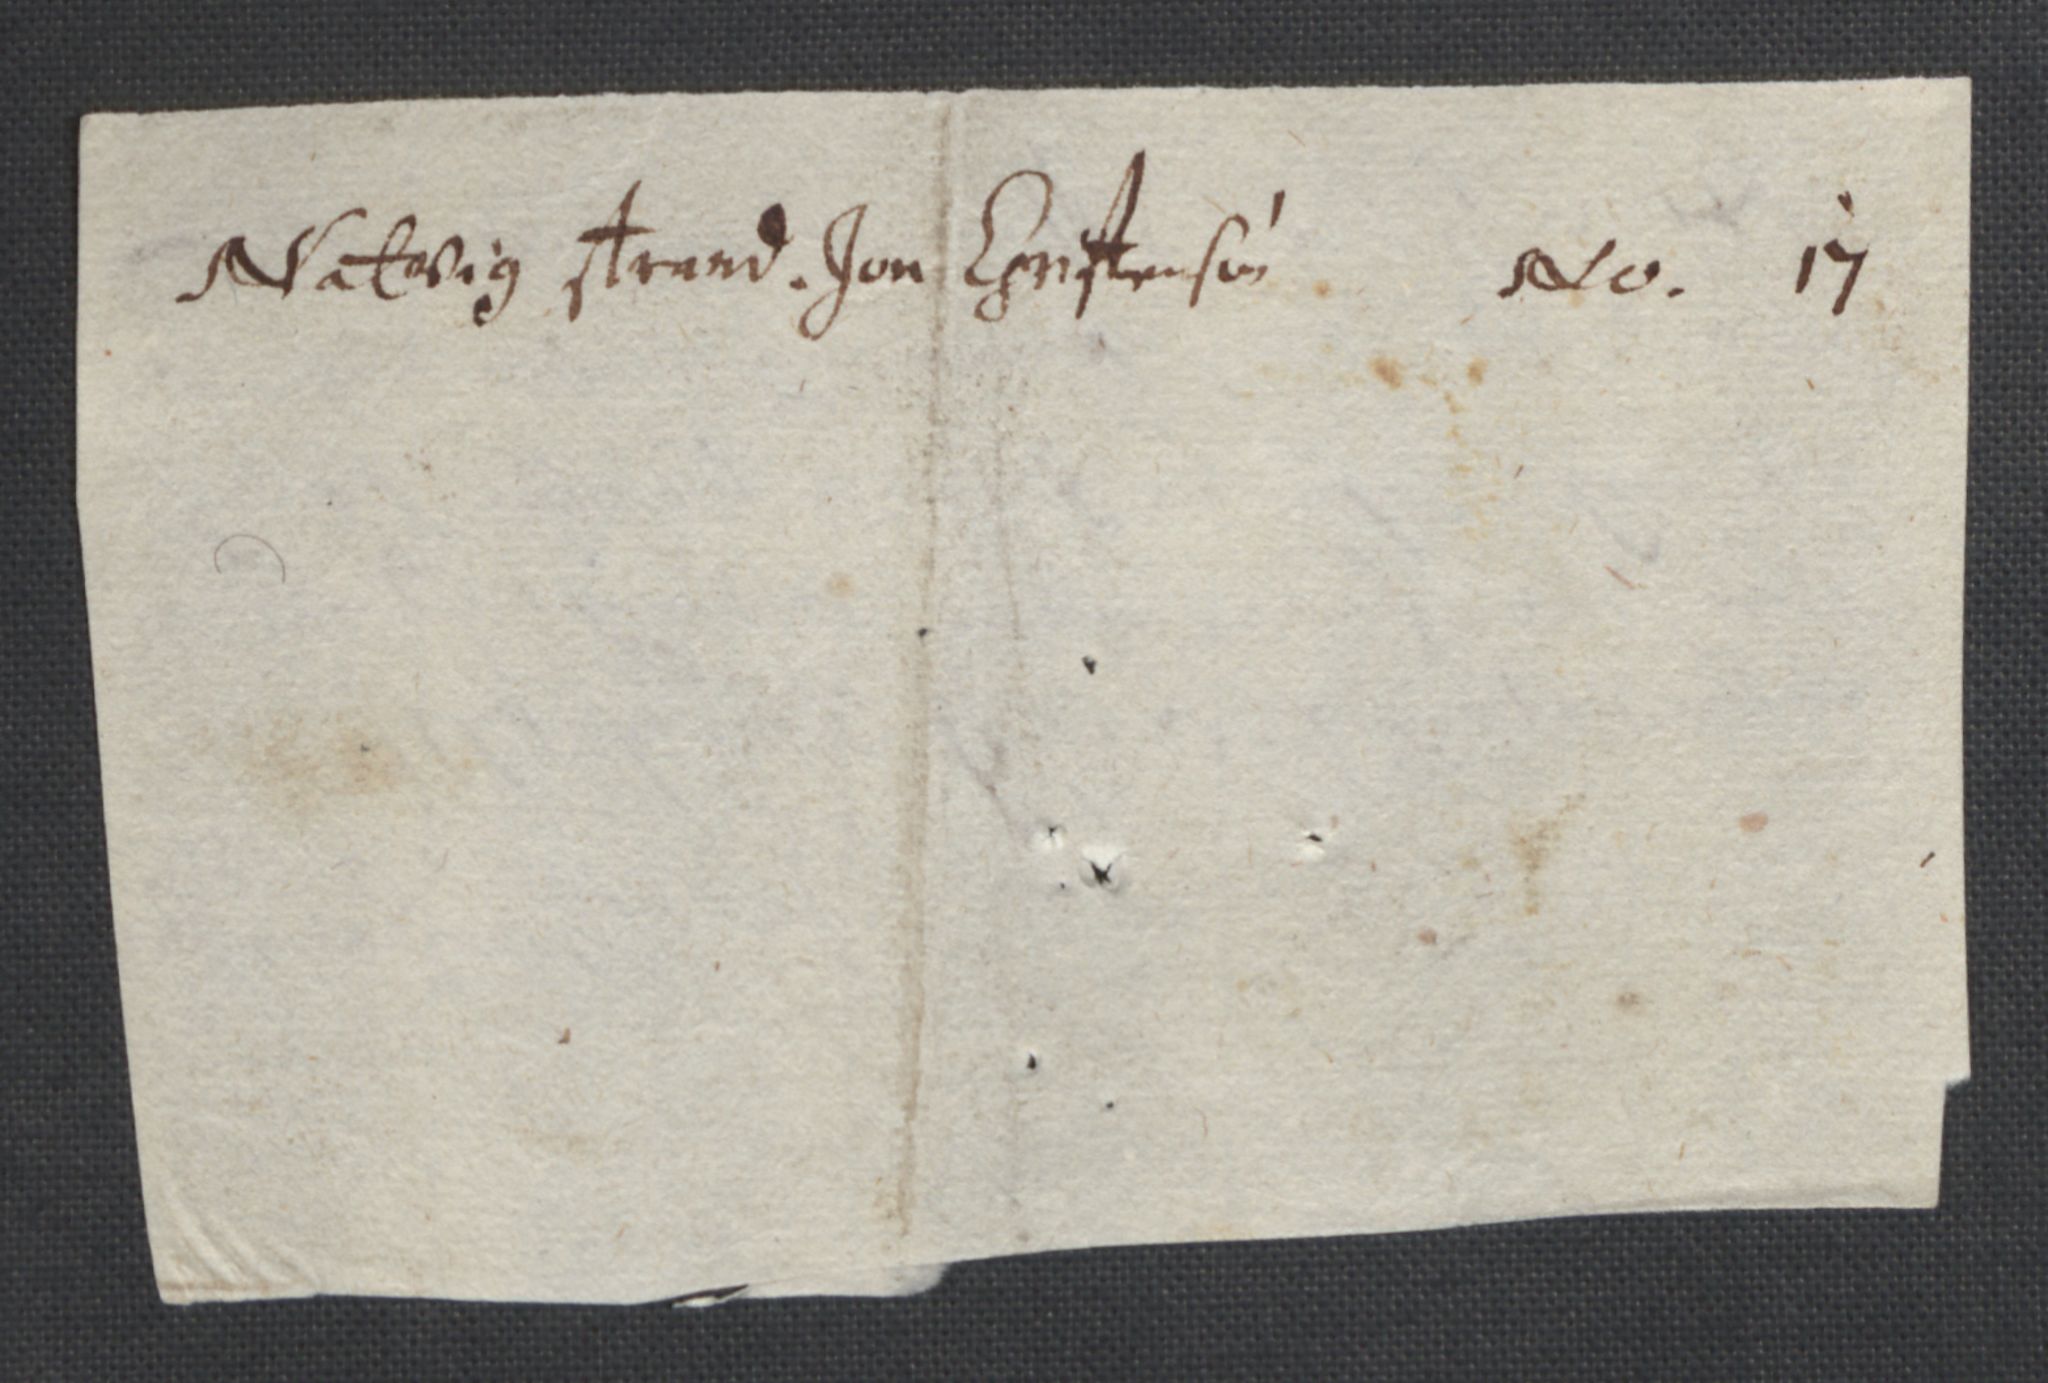 Natvig strand. Jon Christensøn No. 17